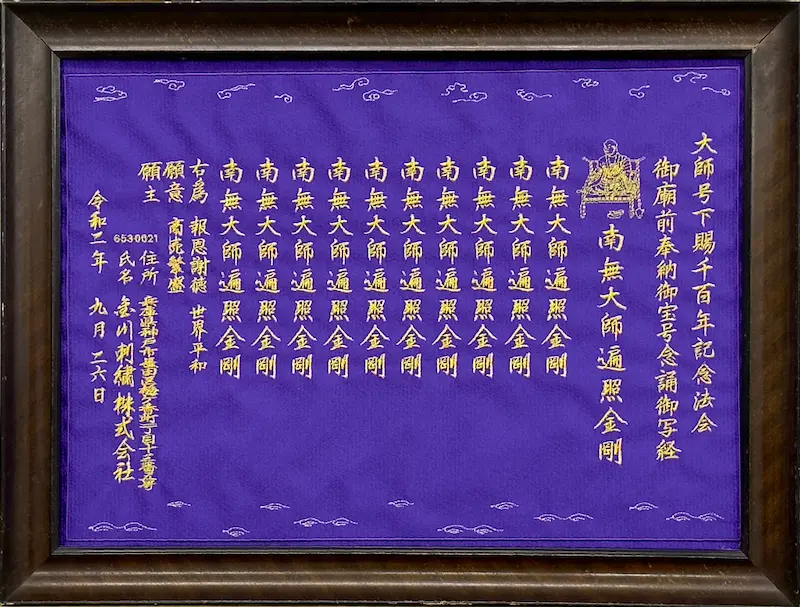 大師号下賜千百年記念法会
御廟前奉納御宝号念誦御写経
南無大師遍照金剛
南無大師遍照金剛
南無大師遍照金剛
南無大師遍照金剛
南無大師遍照金剛
南無大師遍照金剛
南無大師遍照金剛
南無大師遍照金剛
南無大師遍照金剛
南無大師遍照金剛
南無大師遍照金剛
右為 報恩謝徳 世界平和
願意 商売繁盛
願主
653-0021
住所 兵庫県神戸市長田区
氏名 金川刺繍株式会社
令和二年 九月 二六日